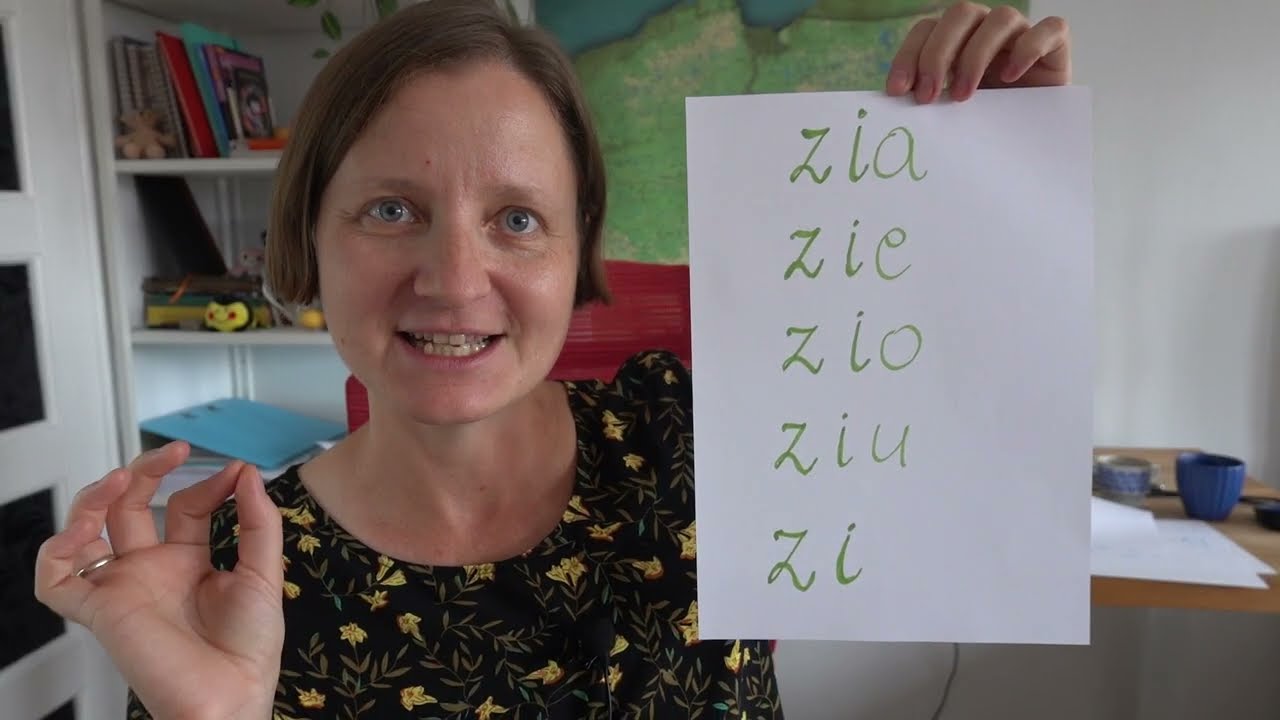 zia
zie
zio
ziu
zi